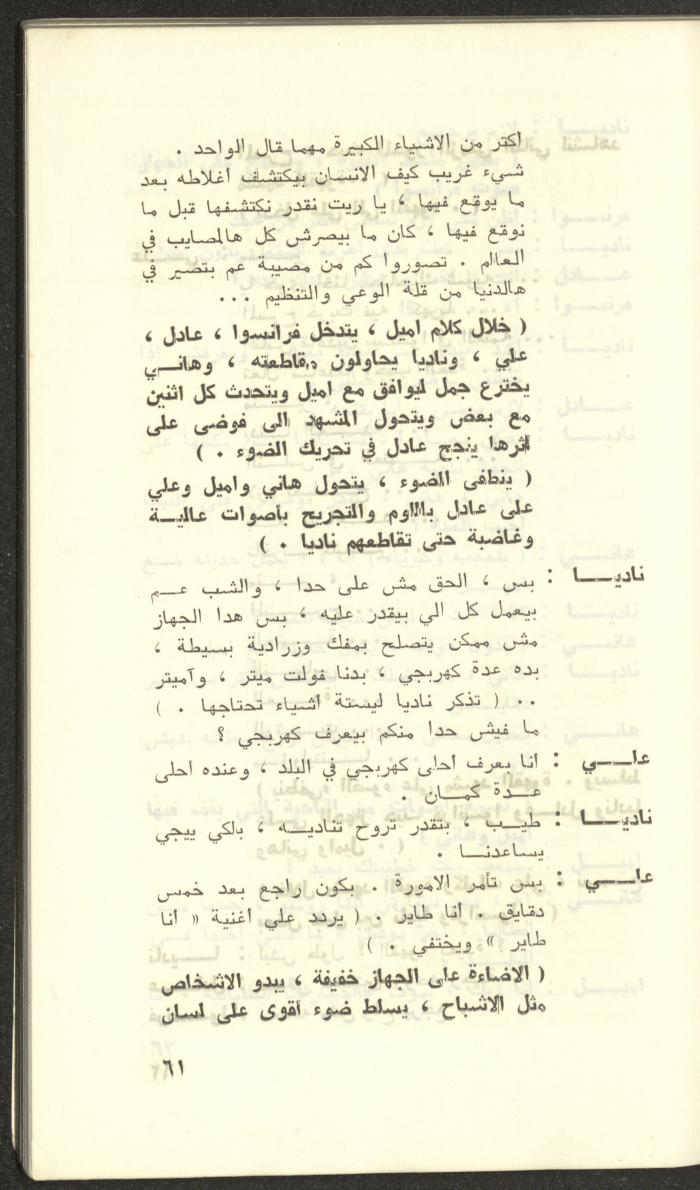 أكتر من الاشياء الكبيرة مهما قال الواحد .
شيء غريب كيف الانسان بيكتشف أغلاطه بعد
ما يوقع فيها ، يا ريت نقدر نكتشفها قبل ما
نوقع فيها ، كان ما بيصرش كل هالمصايب في
العالم . تصوروا كم من مصيبة عم بتصير في
هالدنيا من قلة الوعي والتنظيم ...
( خلال كلام اميل ، يتدخل فرانسوا ، عادل ،
علي ، وناديا يحاولون مقاطعته ، وهانـــي
يخترع جمل ليوافق مع اميل ويتحدث كل اثنين
مع بعض ويتحول المشهد الى فوضى على
أثرها ينجح عادل في تحريك الضوء . )
( ينطفى الضوء ، يتحول هاني واميل وعلي
على عادل باللوم والتجريح بأصوات عاليــة
وغاضبة حتى تقاطعهم ناديا . )
ناديـــا : بس ، الحق مش على حدا ، والشب عــم
بيعمل كل الي بيقدر عليه ، بس هدا الجهاز
مش ممكن يتصلح بمفك وزرادية بسيطة ،
بده عدة كهربجي ، بدنا فولت ميتر ، وآميتر
.. ( تذكر ناديا ليستة أشياء تحتاجها . )
ما فيش حدا منكم بيعرف كهربجي ؟
علـــي : أنا بعرف أحلى كهربجي في البلد ، وعنده أحلى
عــدة كمــان .
ناديـــا : طيــب ، بتقدر تروح تناديــه ، بالكي ييجي
يساعدنــا .
علـــي : بس تأمر الامورة . بكون راجع بعد خمس
دقايق . أنا طاير . ( يردد علي أغنية « أنا
طاير » ويختفي . )
( الاضاءة على الجهاز خفيفة ، يبدو الاشخاص
مثل الاشباح ، يسلط ضوء أقوى على لسان
٦١